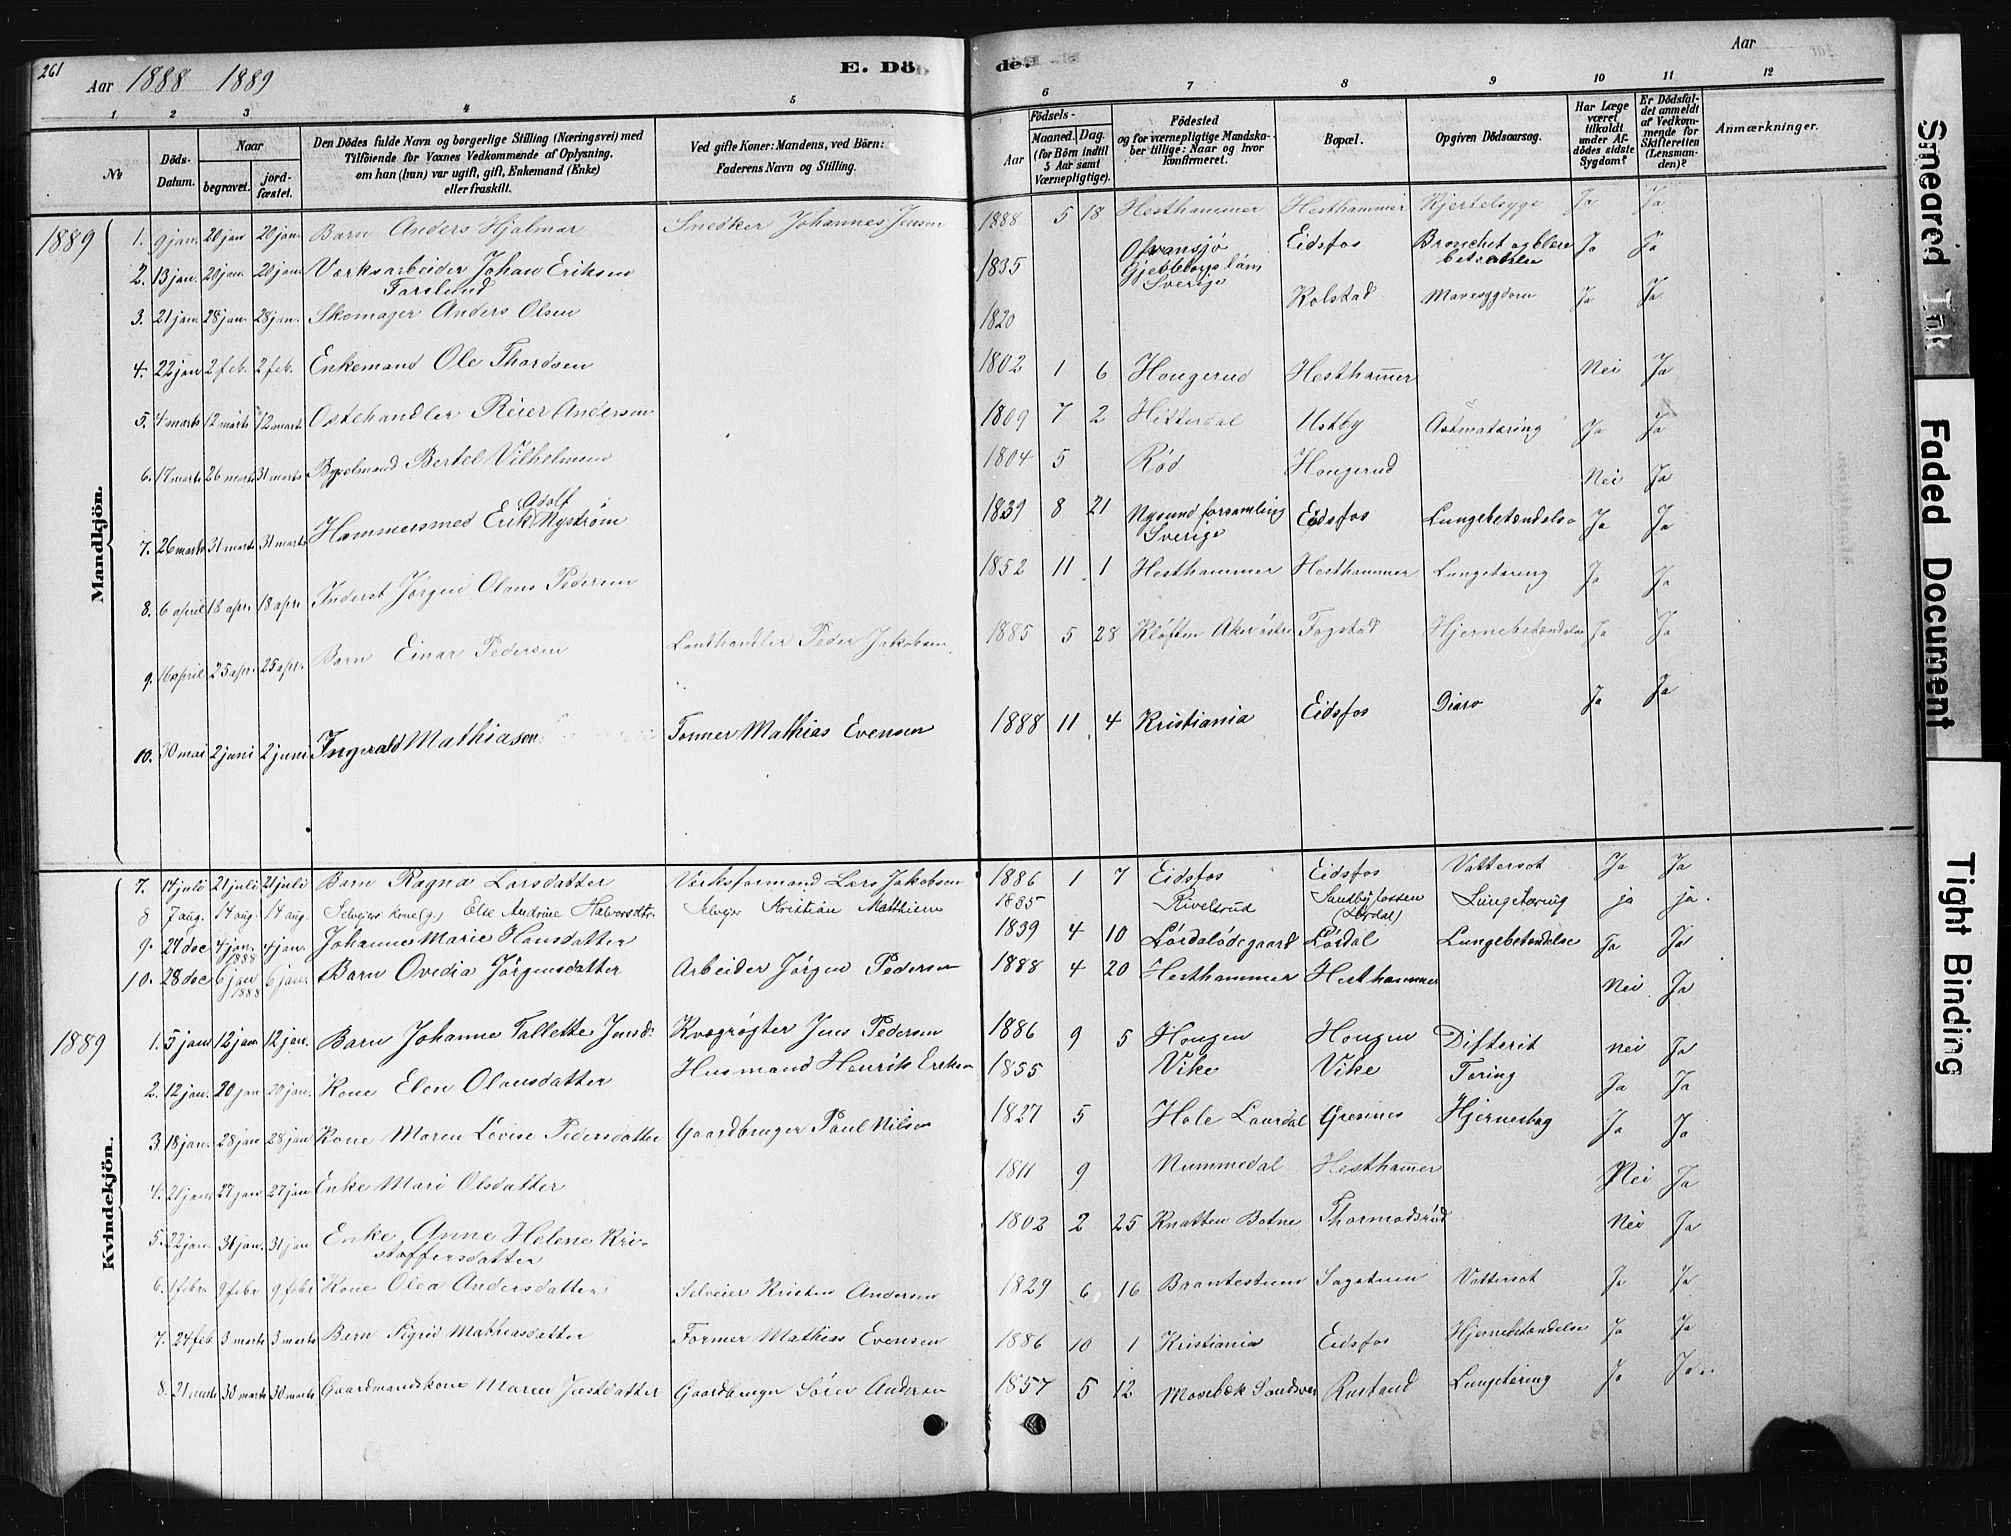 261
Aar 1888 1889
E. Dö
de.
Aar
1 2 3 4 5 6 7 8 9 10 11 12
№
Döds-Datum.
Naar
begravet.
jord-fæstet.
Den Dödes fulde Navn og borgerlige Stilling (Næringsvei) med
Tilföiende for Voxnes Vedkommende af Oplysning.
om han (hun) var ugift, gift, Enkemand (Enke)
eller fraskilt.
Ved gifte Koner: Mandens, ved Börn:
Faderens Navn og Stilling.
Födsels-
Aar
Maaned. Dag.
(for Börn indtil
5 Aar samt
Værnepligtige).
Födested
og for værnepligtige Mandska-
ber tillige: Naar og hvor
konfirmeret.
Bopæl.
Opgiven Dödsaarsag.
Har Læge
været
tilkaldt
under Af-
dödes sidste
Sygdom?
Er Dödsfal-
det anmeldt
af Vedkom-
mende for
Skifteretten
(Lensman-
den)?
Anmærkninger.
Mandkjön.
1889 1. 9 jan. 20 jan 20 jan. Barn Anders Hjalmar Snedker Johannes Jensen 1888 5 18 Hesthammer Hesthammer Kjertelsyge Ja Ja
2. 13 jan. 20 jan. 20 jan. Værksarbeider Johan Eriksen 1835 Ofvansjø Eidsfos Bronchet og blære Ja Ja
Forslund Gjebleborgs län
Sverige
3. 21 jan. 28 jan. 28 jan. Skomager Anders Olsen 1820 Kolstad Mavesygdom Ja Ja
4. 22 jan 2 feb. 2 feb. Enkemand Ole Thordsen 1802 1 6 Hougerud Hesthammer Nei Ja
5. 4 marts 12 marts 12 marts Ostehandler Reier Andersen 1809 7 2 Hitterdal Ustby Astmatæring Ja Ja
6. 17 marts 26 marts 31 marts Bertel Vilhelmsen 1804 5 Rød Hougerud Nei Ja
Adolf
7. 26 marts 31 marts 31 marts Hammersmed Erik Nystrøm 1839 8 21 Nysund forsamling Eidsfos Lungebetændelse Ja Ja
Sverige
8. 6 april 18 apr. 18 apr. Inderst Jørgen Olaus Pedersen 1852 11 1 Hesthammer Hesthammer Lungetæring Ja Ja
9. 16 april 25 apr. 25 apr. Barn Einar Pedersen Landhandler Peder Jakobsen 1885 5 28 Kløften Aker østre Fogstad Hjernebetændelse Ja Ja
10. 30 mai 2 juni 2 juni Ingvald Mathiasen Former Mathias Evensen 1888 11 4 Kristiania Eidsfos Diare Ja Ja
Kvindekjön.
7. 14 juli 21 juli 21 juli Barn Ragna Larsdatter Verksformand Lars Jakobsen 1886 1 7 Eidsfos Eidsfos Vattersot Ja Ja
8 7 aug. 14 aug 14 aug. Selveiers kone (g.) Else Andrine Halvorsdtr. Selveier Kristian Matthisen 1835 Rivelsrud Sandbyfossen Lungetæring ja ja.
(Lørdal)
9. 27 dec 4 jan. 4 jan. Johanne Marie Hansdatter 1839 4 10 Lørdalødegaard Lørdal Lungebetændelse Ja Ja
1888
10. 28 dec 6 jan 6 jan. Barn Ovedia Jørgensdatter Arbeider Jørgen Pedersen 1888 4 20 Hesthammer Hesthammer Nei Ja
1888
1889 1. 5 jan 12 jan 12 jan. Barn Johanne Tallette Jensd. Kvægrøgter Jens Pedersen 1886 9 5 Hougen Hougen Difterit nei Ja
2. 12 jan. 20 jan 20 jan. Kone Elen Olausdatter Husmand Henrik Eriksen 1855 Vike Vike Tæring Ja Ja
3. 18 jan. 28 jan 28 jan Kone Maren Lovise Pedersdatter Gaardbruger Paul Nilsen 1827 5 Hole Laurdal Gresnes Hjerneslag Ja Ja
4. 21 jan. 27 jan 27 jan Enke Mari Olsdatter 1811 9 Nummedal Hesthammer Nei Ja
5. 22 jan. 31 jan. 31 jan Enke Anne Helene Kri-
stoffersdatter 1802 2 25 Knatten Botne Thormodsrød Nei Ja
6. 1 febr. 9 febr 9 febr Kone Olea Andersdatter Selveier Kristen Andersen 1829 6 16 Brantestuen Sagstuen Vattersot Ja Ja
7. 24 feb 3 marts 3 marts Barn Sigrid Mathiasdatter Former Mathias Evensen 1886 10 1 Kristiania Eidsfos Hjernebetændelse Ja Ja
8. 21 marts 30 marts 30 marts Gaardmandskone Maren Justdatter Gaardbruger Søren Andersen 1857 5 12 Moesbæk Sandsvær Rustand Lungetæring Ja Ja.
Smeared Ink
Faded Document
Tight Binding